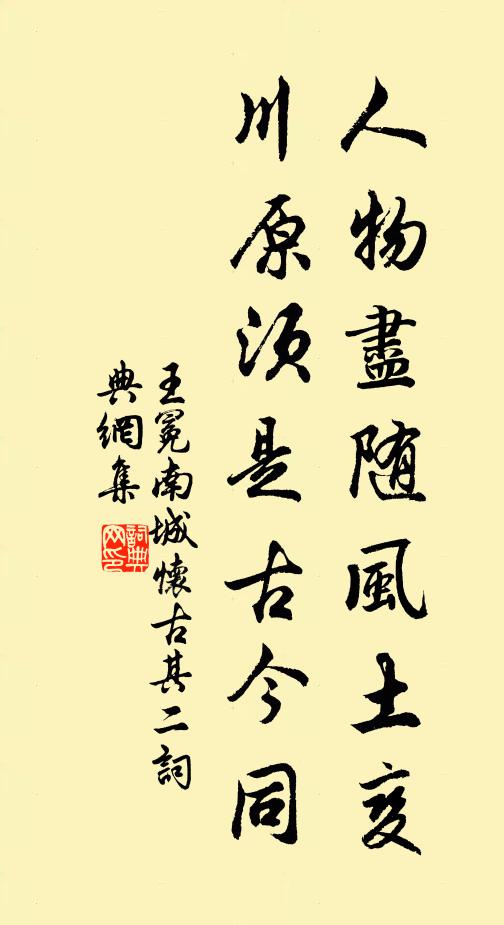 人物盡随風土変
川原須是古今同
王冕南城懷古其二詞
典網集
詞典
网印